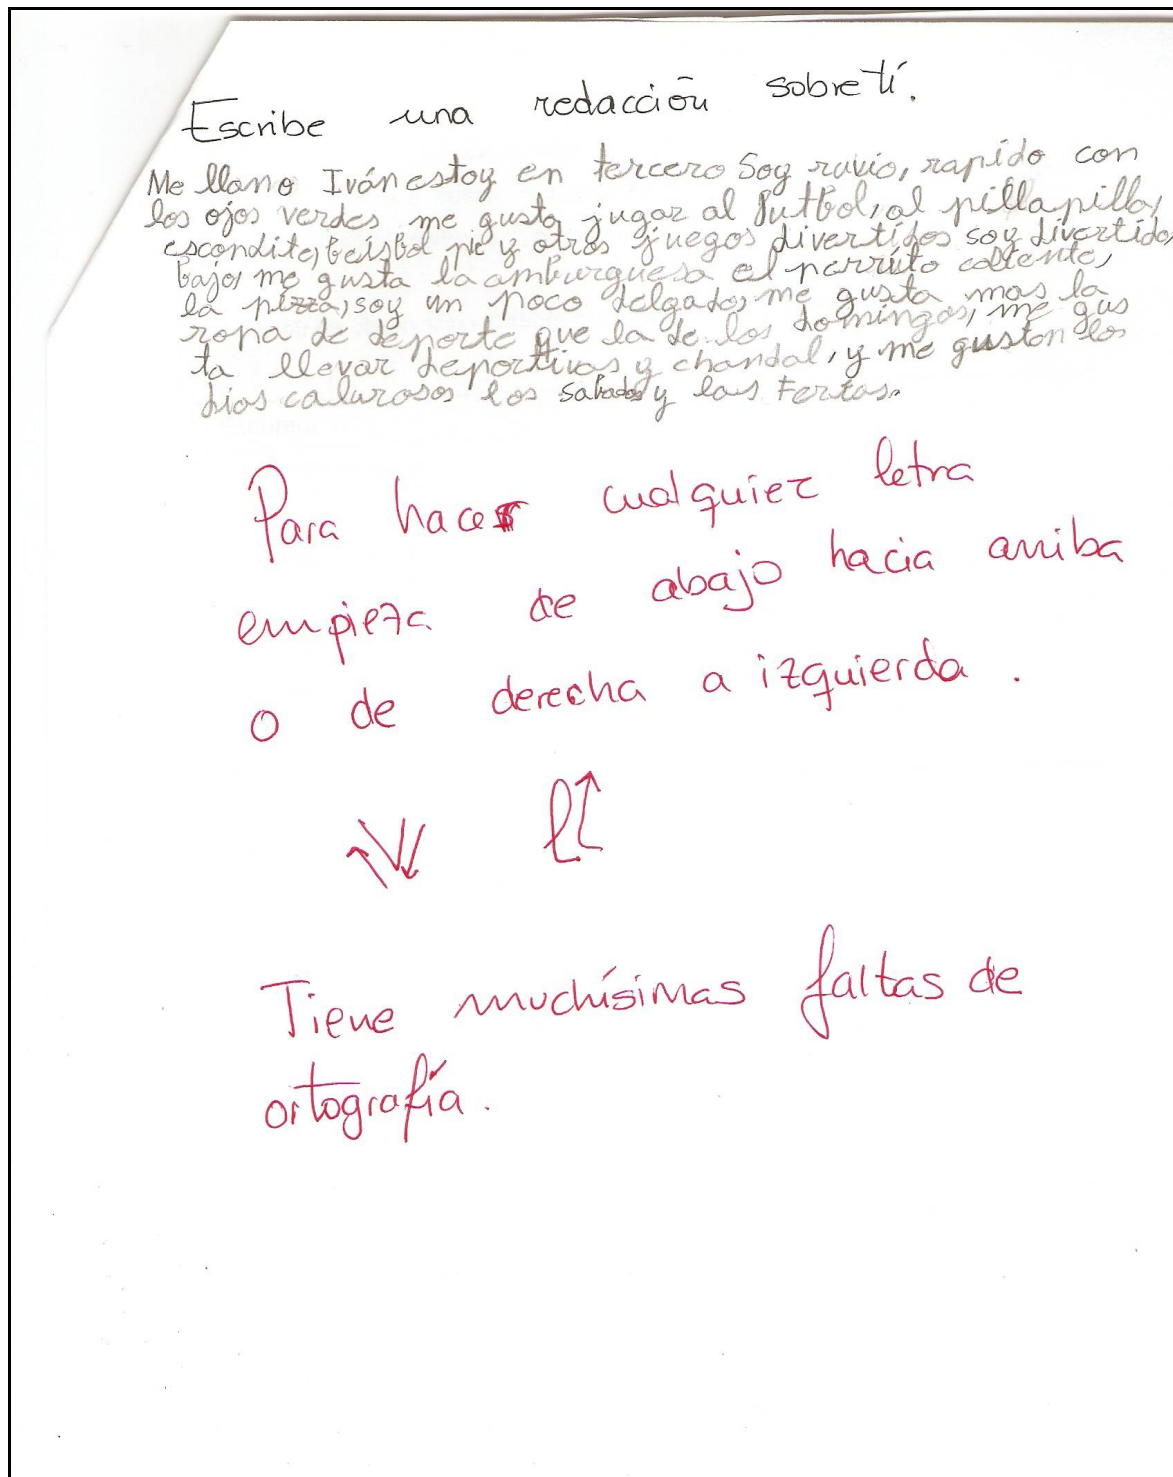 Escribe una redacción sobre tí.
Me llamo Iván estoy en tercero Soy ruvio, rapido con
los ojos verdes me gusta jugar al futbol, al pilla pilla,
escondite, beisbol pie y otros juegos divertidos soy divertido,
bajo, me gusta la amburguesa el perrito caliente,
la pizza, soy un poco delgado, me gusta mas la
ropa de deporte que la de los domingos, me gus
ta llevar deportivas y chandal, y me gustan los
dias calurosos los sabados y las
Para hacer cualquier letra
empieza de abajo hacia arriba
o de derecha a izquierda.
Tiene muchísimas faltas de
ortografía.